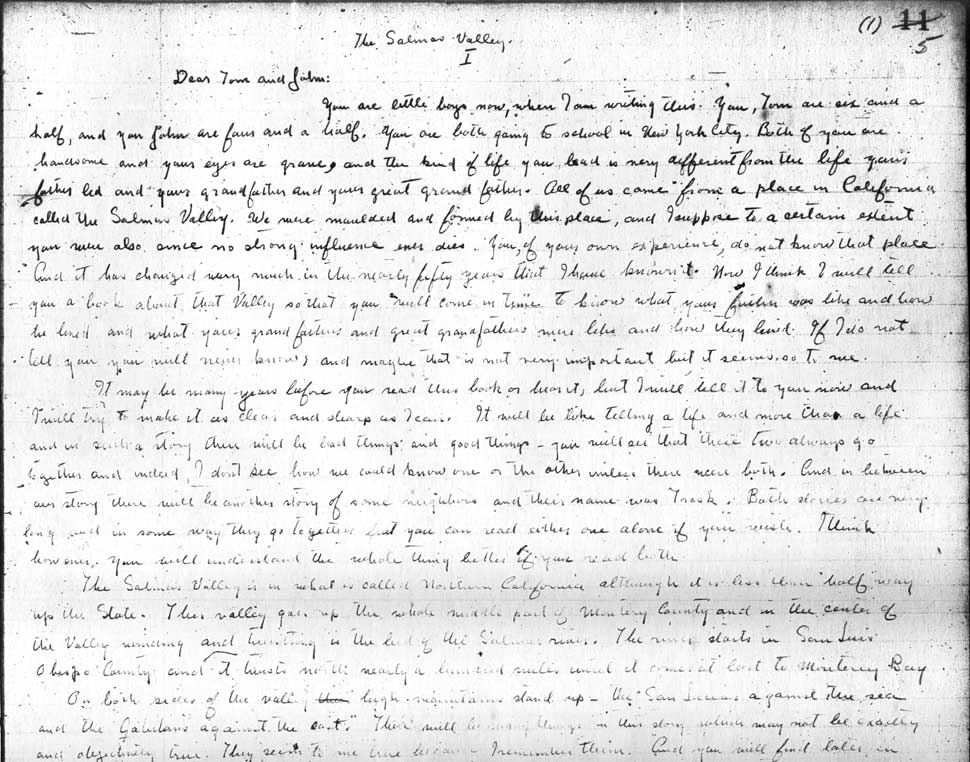 (1) 11
5
The Salinas Valley.
I
Dear Tom and John:
You are little boys now, when I am writing this. You, Tom are six and a
half, and you John are four and a half. You are both going to school in New York City. Both of you are
handsome and your eyes are grave, and the kind of life you lead is very different from the life your
father led and your grandfather and your great grand father. All of us came from a place in California
called the Salinas Valley. We were moulded and formed by this place, and I suppose to a certain extent
you were also since no strong influence ever dies. You, of your own experience, do not know that place.
And it has changed very much in the nearly fifty years that I have known it. Now I think I will tell
you a book about that Valley so that you will come in time to know what your father was like and how
he lived and what your grand fathers and great grandfathers were like and how they lived. If I do not
tell you you will never know, and maybe that is not very important but it seems so to me.
It may be many years before you read this book or hear it, but I will tell it to you now and
I will try to make it as clear and sharp as I can. It will be like telling a life and more than a life
and in such a story there will be bad things and good things - you will see that these two always go
together and indeed, I don't see how we could know one or the other unless there were both. And in between
our story there will be another story of some neighbors and their name was Trask. Both stories are very
long and in some way they go together but you can read either one alone if you wish. I think
however, you will understand the whole thing better if you read both.
The Salinas Valley is in what is called Northern California although it is less than half way
up the State. This valley goes up the whole middle part of Monterey County and in the center of
the Valley winding and twisting is the bed of the Salinas river. The river starts in San Luis
Obispo County and it twists north nearly a hundred miles until it comes at last to Monterey Bay
On both sides of the valley the high mountains stand up - the San Lucias against the sea
and the Gabilans against the east. There will be many things in this story which may not be exactly
and objectively true. They seem to me true because I remember them. And you will find later in